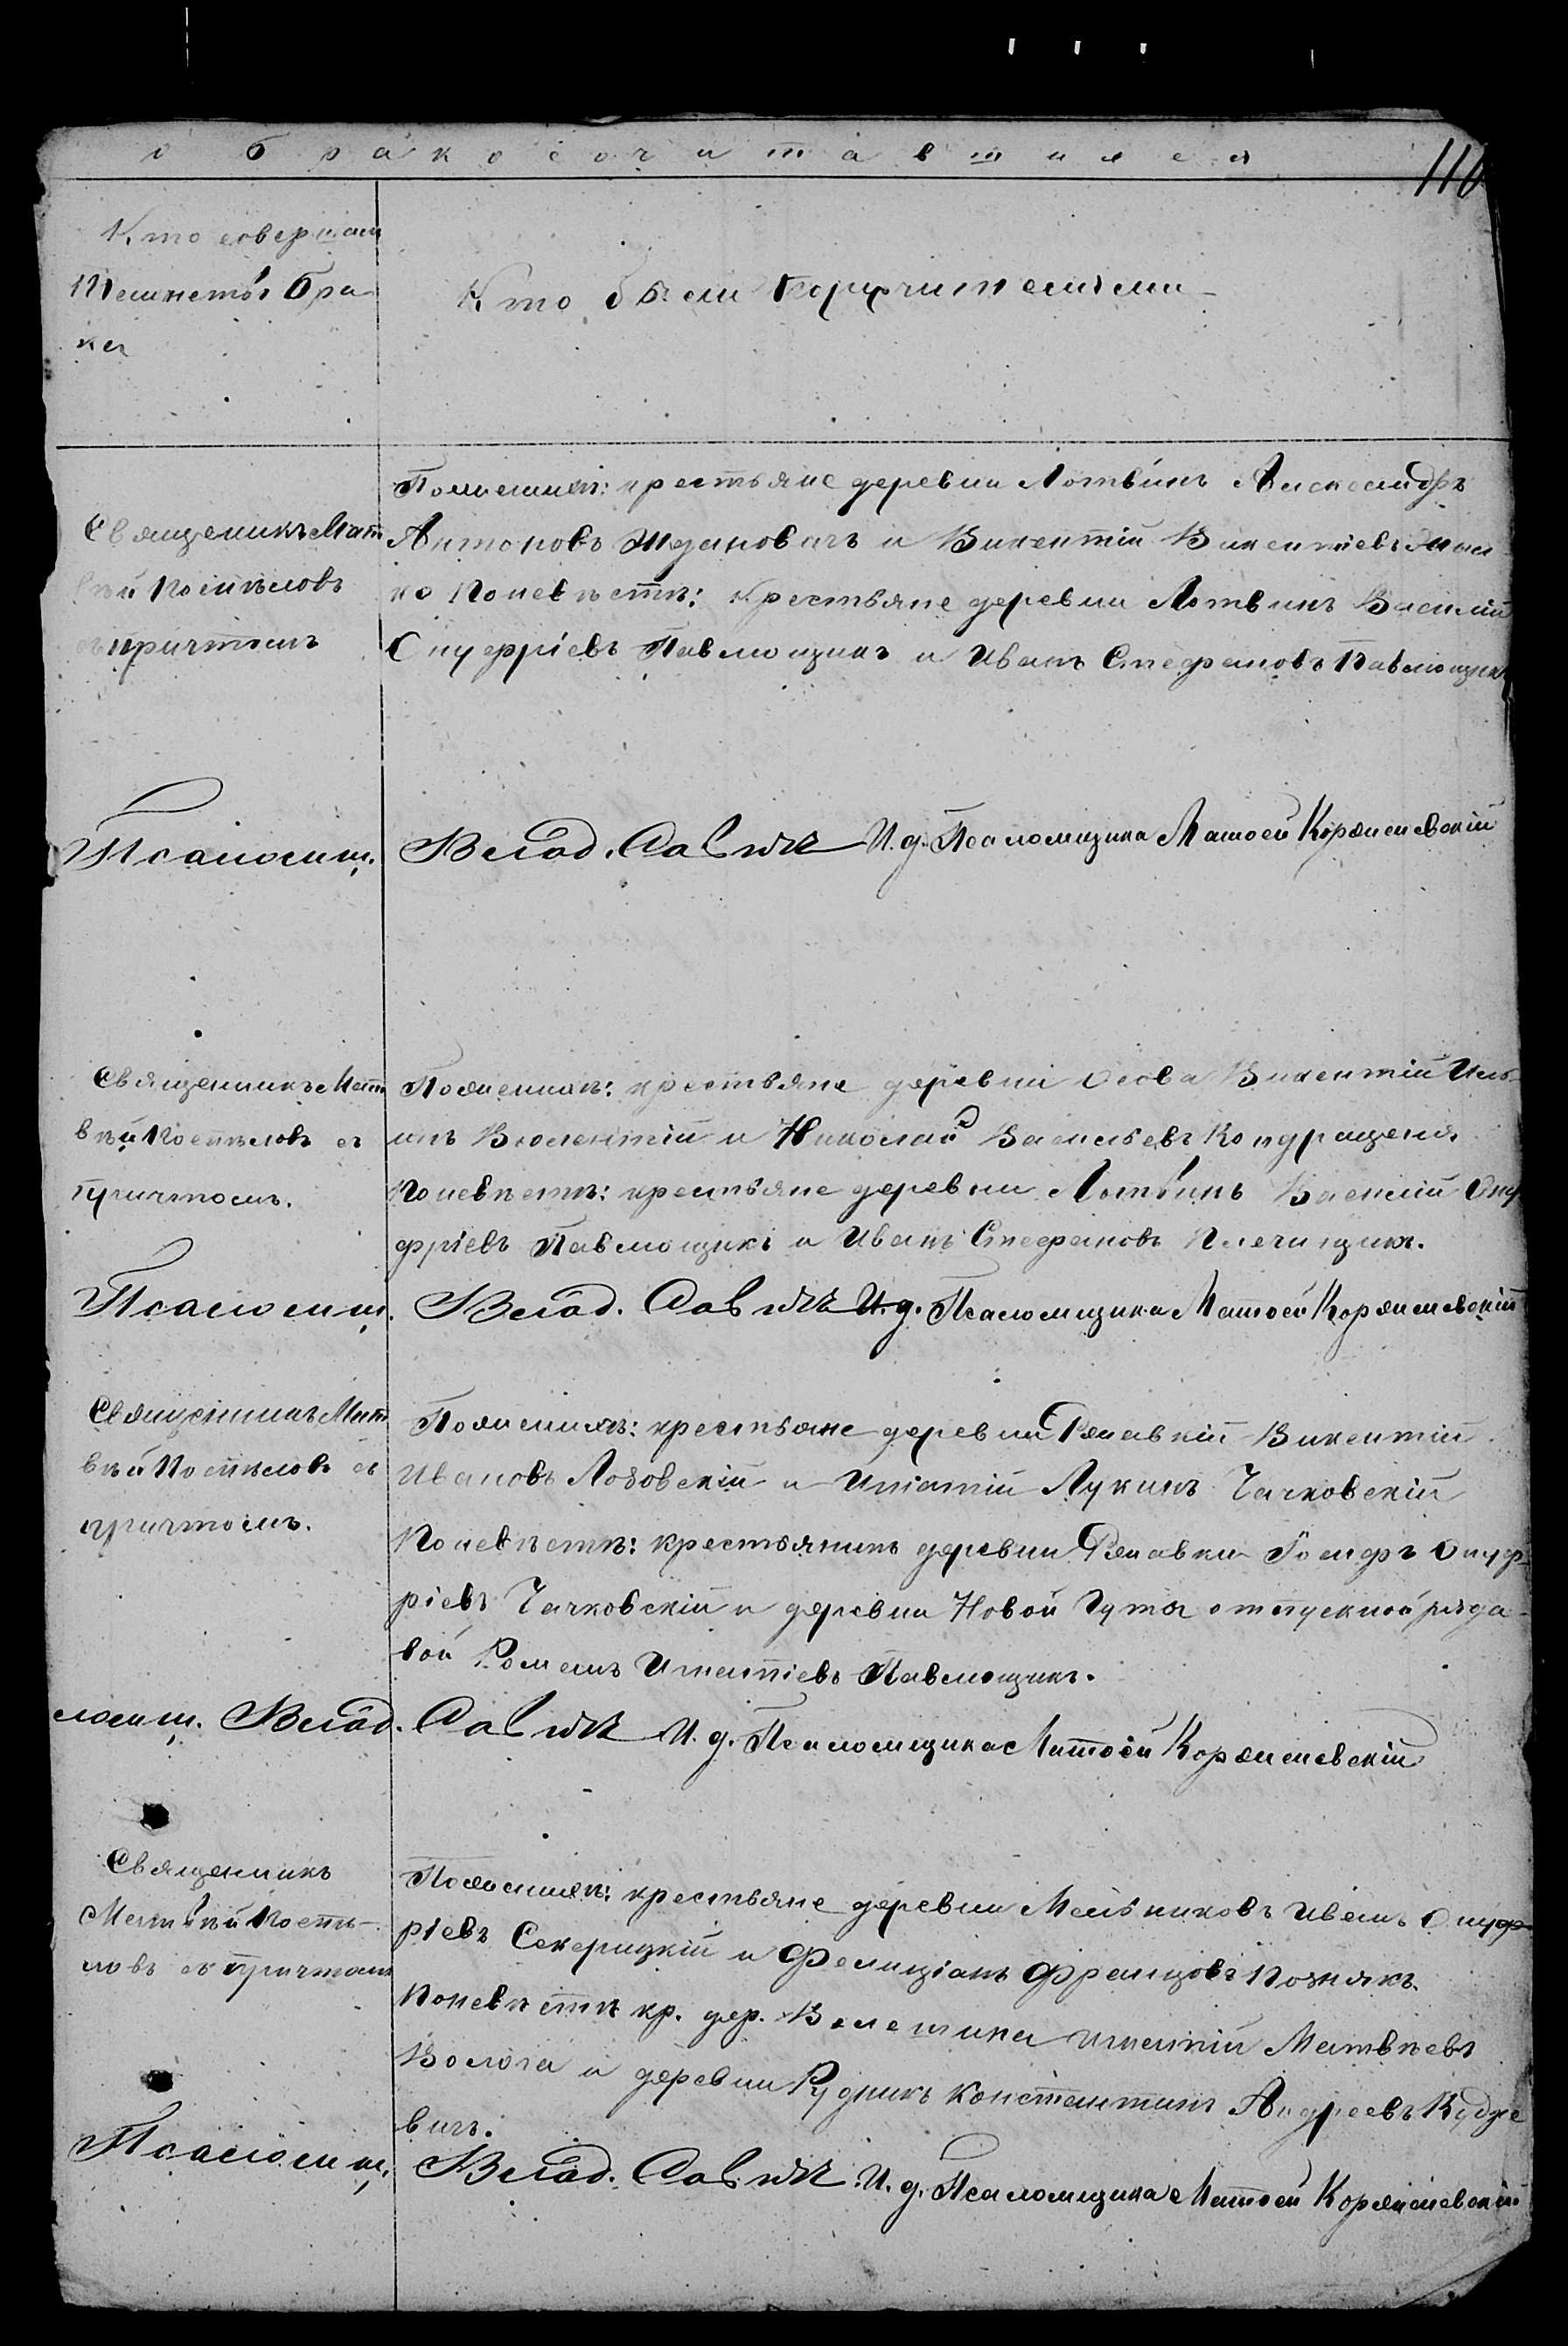 о бракосочитавшихся
110
Кто совершалъ
Таинство Бра
ка
Кто были поручителями
Священникъ Мат
вѣй Поспѣловъ
съ причтомъ
По женихѣ: крестьяне деревни Лотвинъ Александръ
Антоновъ Ждановичъ и Викентій Викентіевъ
ко По невѣстѣ: крестьяне деревни Лотвинъ Василій
Онуфріевъ Павлющикъ и Иванъ Стефановъ Павлющикъ
Псаломщ. Влад. Савичъ И. д. Псаломщика Матѳей Корженевскій
Священникъ Мат
вѣй Поспѣловъ съ
причтомъ.
По женихѣ: крестьяне деревни Осова Викентій Иль
инъ и Николай Васильевъ Кондращеня
По невѣстѣ: крестьяне деревни Лотвинъ Василій Ону
фріевъ Павлющикъ и Иванъ Стефановъ
Псаломщ. Влад. Савичъ И. д. Псаломщика Матѳей Корженевскій
Священникъ Мат
вѣй Поспѣловъ съ
причтомъ.
По женихѣ: крестьяне деревни Викентій
Ивановъ Лозовскій и Игнатій Лукинъ Чачковскій
По невѣстѣ: крестьянинъ деревни Іосифъ Онуф
ріевъ Чачковскій и деревни Новой Гуты отпускной рядо
вой Романъ Игнатіевъ Павлющикъ.
ломщ. Влад. Савичъ И. д. Псаломщика Матѳей Корженевскій
Священникъ
Матвѣй Поспѣ-
ловъ съ причтомъ
По женихѣ: крестьяне деревни Мельниковъ Иванъ Онуф
ріевъ Секерицкій и Фелиціанъ Францовъ Познякъ.
По невѣстѣ кр. дер. Игнатій Матвѣевъ
Волога и деревни Рудникъ Константинъ Андреевъ Кудже
вичъ.
Псаломщ. Влад. Савичъ И. д. Псаломщика Матѳей Корженевскій